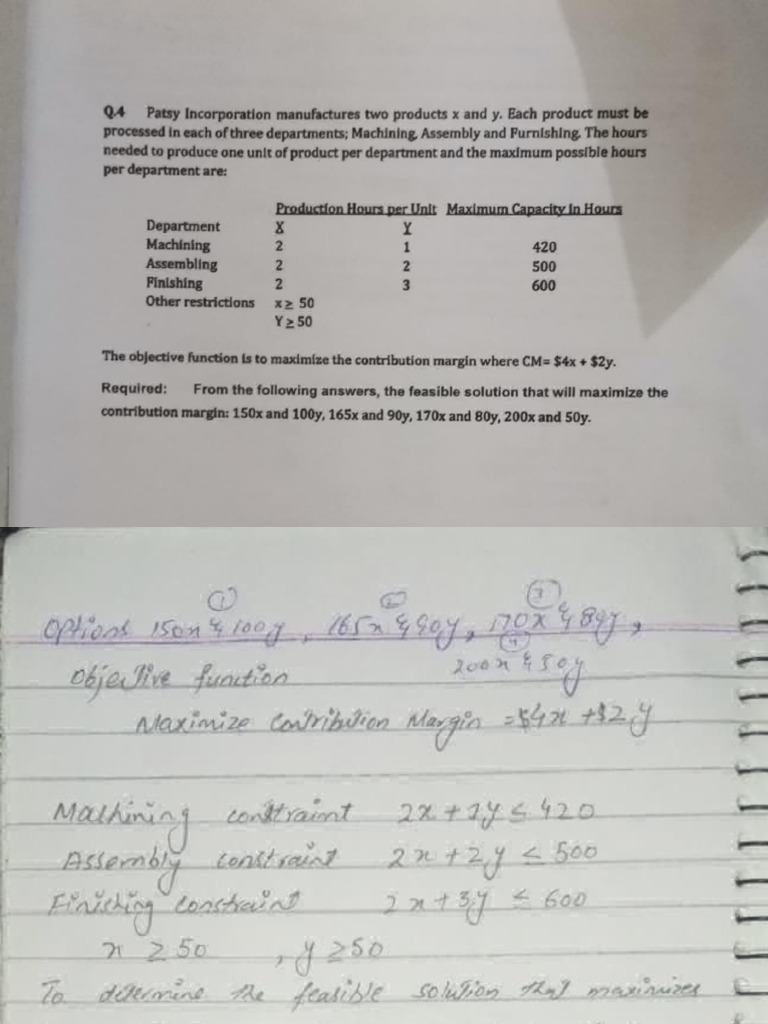 Q.4 Patsy Incorporation manufactures two products x and y. Each product must be
processed in each of three departments; Machining, Assembly and Furnishing. The hours
needed to produce one unit of product per department and the maximum possible hours
per department are:
Production Hours per Unit Maximum Capacity in Hours
Department X Y
Machining 2 1 420
Assembling 2 2 500
Finishing 2 3 600
Other restrictions x ≥ 50
Y ≥ 50
The objective function is to maximize the contribution margin where CM= $4x + $2y.
Required: From the following answers, the feasible solution that will maximize the
contribution margin: 150x and 100y, 165x and 90y, 170x and 80y, 200x and 50y.
① ② ③
Options 150x & 100y, 165x & 90y, 170x & 80y,
④
200x & 50y
Objective function
Maximize Contribution Margin = $4x + $2y
Machining constraint 2x + 1y ≤ 420
Assembly constraint 2x + 2y ≤ 500
Finishing constraint 2x + 3y ≤ 600
x ≥ 50 , y ≥ 50
To determine the feasible solution that maximizes